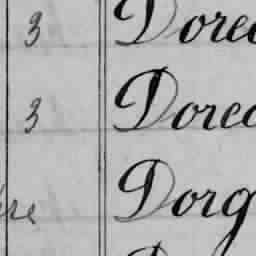 3 Dorec
3 Dorec
re Dorg